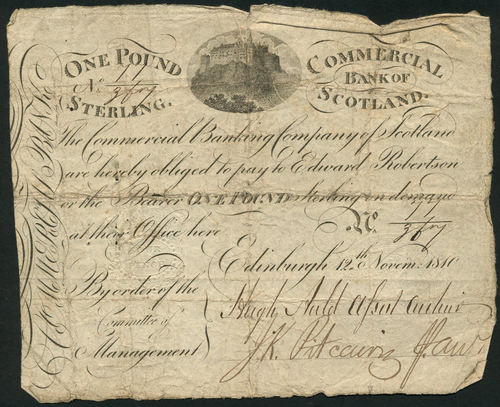 ONE POUND
No.
STERLING.
COMMERCIAL
BANK OF
SCOTLAND.
The Commercial Banking Company of Scotland
are hereby obliged to pay to Edward Robertson
or the Bearer ONE POUND Sterling on demand
at their Office here
No.
Edinburgh 12th Novem. 1810
By order of the
Committee of
Management
Hugh Auld
J.K. Pitcairn